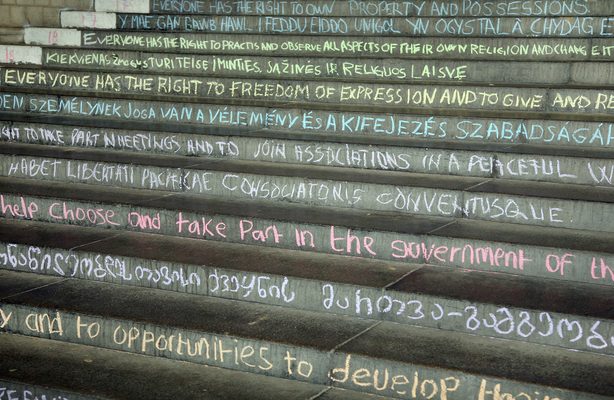 EVERYONE HAS THE RIGHT TO OWN PROPERTY AND POSSESSIONS
Y MAE GAN BAWB HAWL I FEDDU EIDDO UNIGOL YN OGYSTAL Â CHYDAG E
EVERYONE HAS THE RIGHT TO PRACTIS AND OBSERVE ALL ASPECTS OF THEIR OWN RELIGION AND CHANGE IT
KIEKVIENAS ŽMOGUS TURI TEISĘ Į MINTIES, SĄŽINĖS IR RELIGIJOS LAISVĘ
EVERYONE HAS THE RIGHT TO FREEDOM OF EXPRESSION AND TO GIVE AND RE
DEN SZEMÉLYNEK JOGA VAN A VÉLEMÉNY ÉS A KIFEJEZÉS SZABADSAGÁR
IGHT TO TAKE PART IN MEETINGS AND TO JOIN ASSOCIATIONS IN A PEACEFUL W
HABET LIBERTATI PACIFICAE CONSOCIATONIS CONVENTUSQUE
help choose and take part in the government of th
თავისი ქვეყნის მართვა-გამგეობა
y and to opportunities to develop their